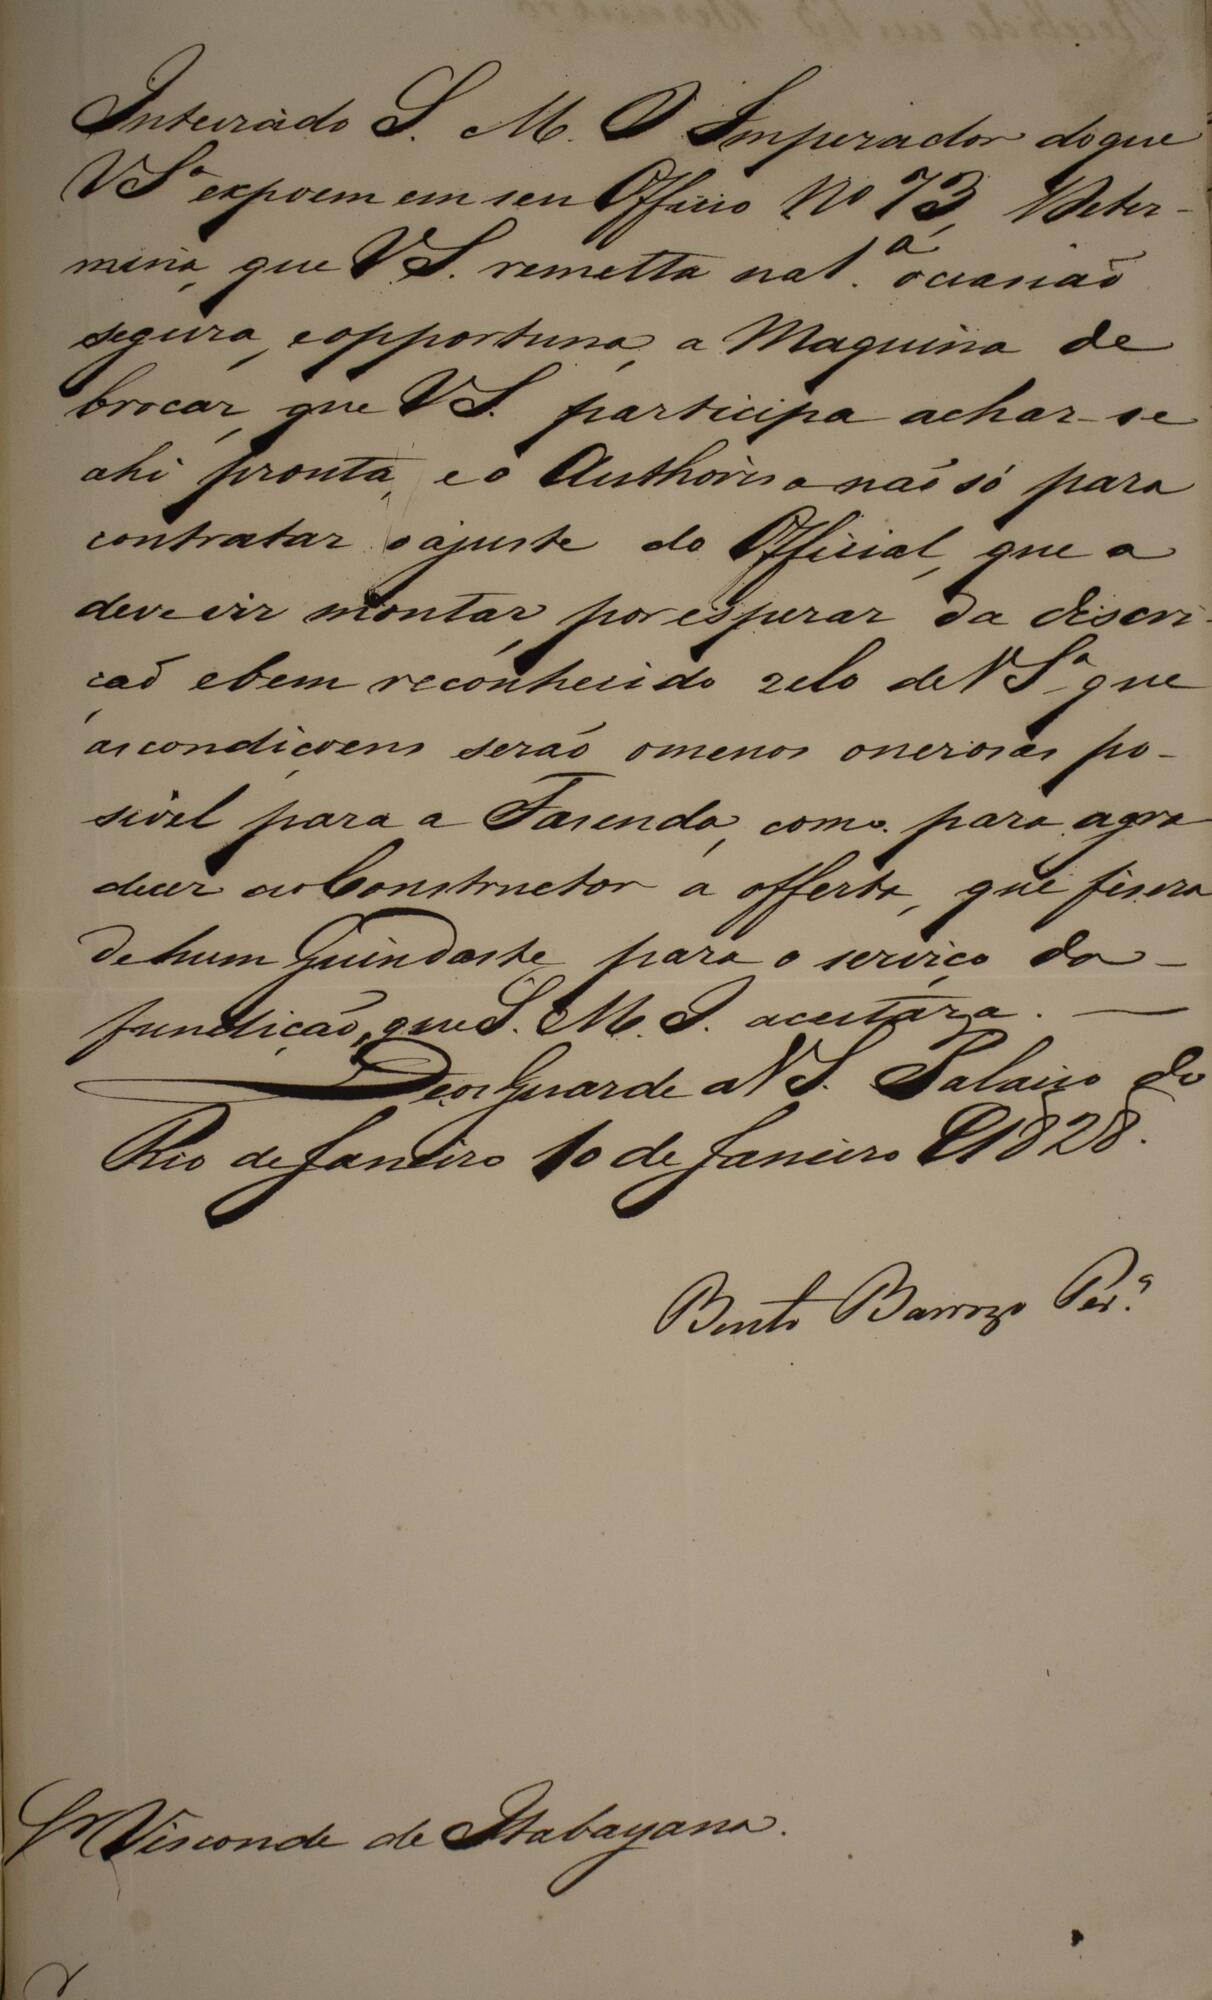 Inteirado S. M. O Imperador do que
VSª expoem em seu Officio Nº 73, Deter-
mina, que VS. remetta na 1.ª occasiaõ
segura, e opportuna, a Maquina de
brocar, que VS. participa achar-se
ahi pronta, e o Authorisa naõ só para
contratar o ajuste do Official, que a
deve vir montar, por esperar da discri-
çaõ e bem reconhecido zelo de VSª que
as condiçoens seraõ o menos onerosas po-
sivel para a Fasenda, como para agra
decer ao Constructor a offerta, que fisera
de hum Guindaste, para o serviço da
fundiçaõ, que S. M. I. aceitára. —
Deos Guarde a VS. Palacio do
Rio de Janeiro 10 de Janeiro de 1828.
Bento Barrozo Per.ª
Sr Visconde de Itabayana.